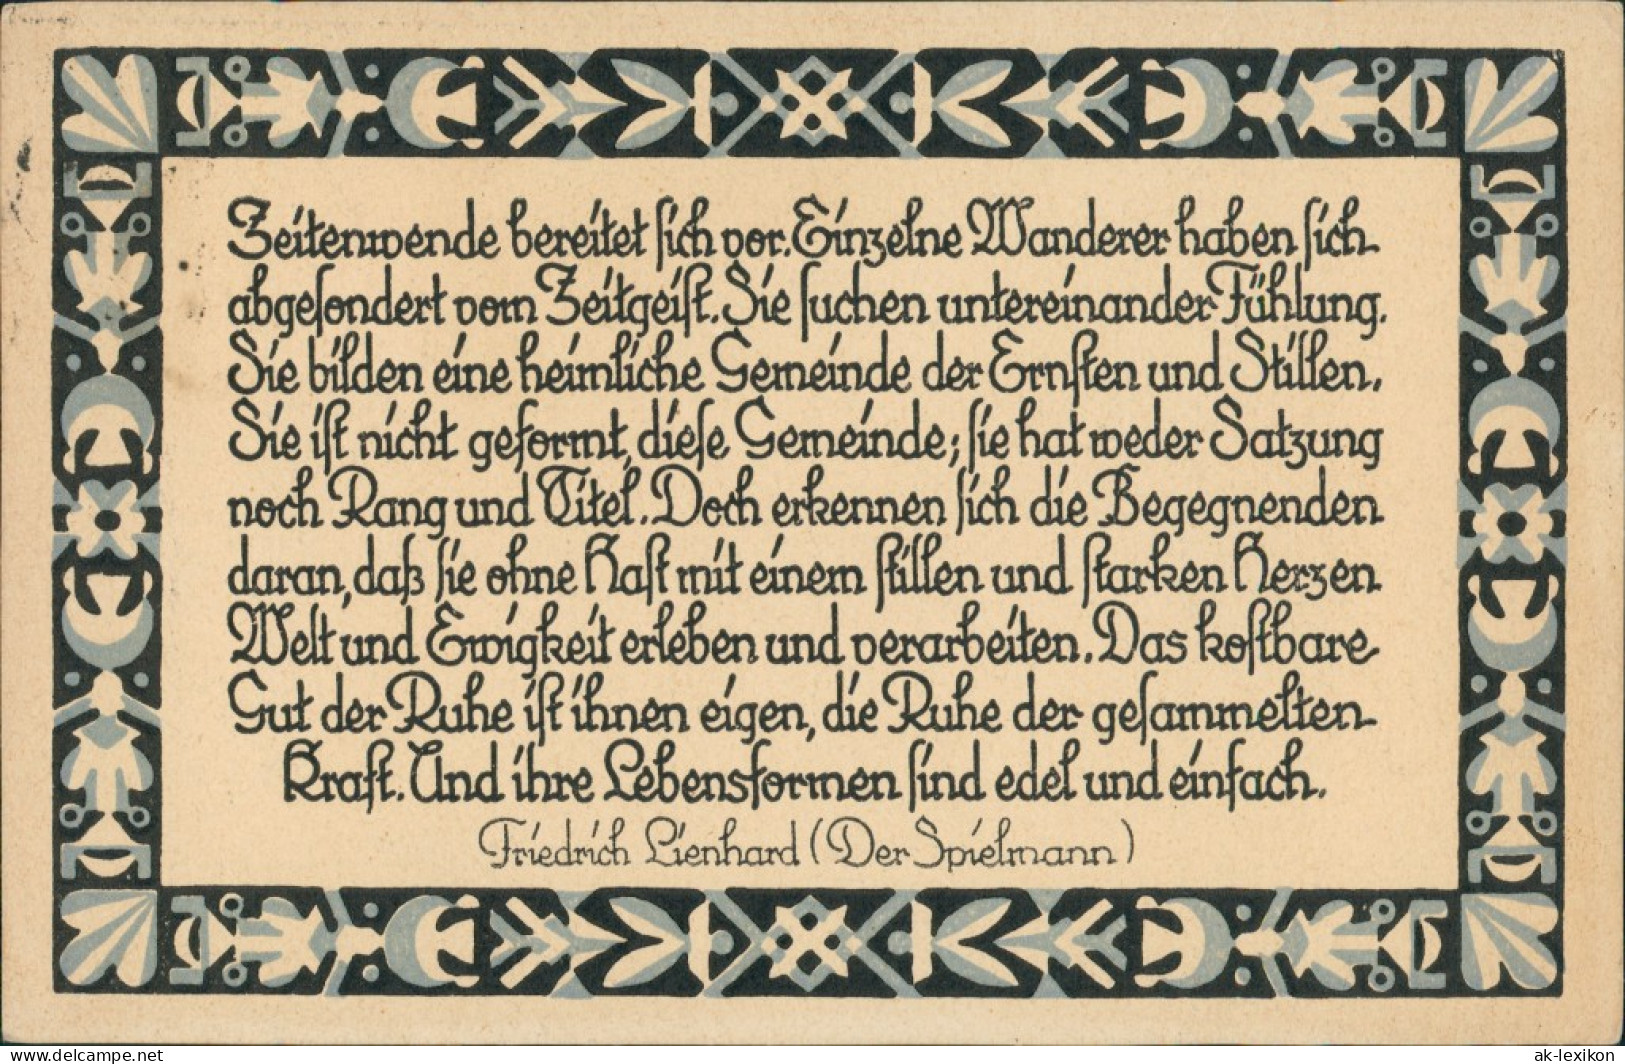 Zeitenwende bereitet sich vor. Einzelne Wanderer haben sich
abgesondert vom Zeitgeist. Sie suchen untereinander Fühlung.
Sie bilden eine heimliche Gemeinde der Ernsten und Stillen.
Sie ist nicht geformt, diese Gemeinde; sie hat weder Satzung
noch Rang und Titel. Doch erkennen sich die Begegnenden
daran, daß sie ohne Hast mit einem stillen und starken Herzen
Welt und Ewigkeit erleben und verarbeiten. Das kostbare
Gut der Ruhe ist ihnen eigen, die Ruhe der gesammelten
Kraft. Und ihre Lebensformen sind edel und einfach.
Friedrich Lienhard (Der Spielmann)
www.delcampe.net
ak-lexikon